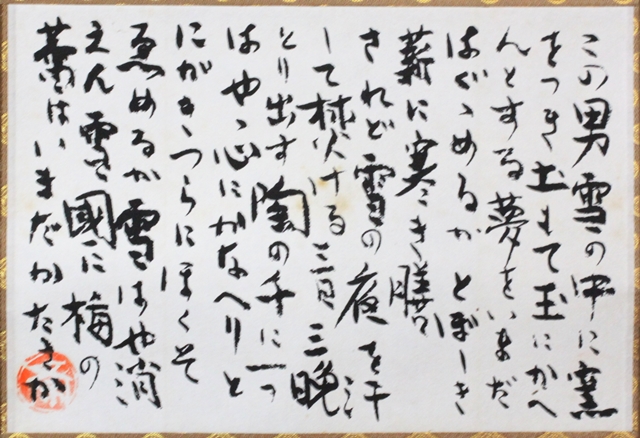 この男雪の中に窯
をつき土もて玉にかへ
んとする夢をいまだ
はぐゝめるかとぼしき
薪に寒き膳か
されど雪の夜を汗
して焚ける三日三晩
とり出す陶の千に一つ
はやゝ心にかなへりと
にがきつらにほくそ
ゑめるか雪はや消
えん雪国に梅の
蕾はいまだかたきか